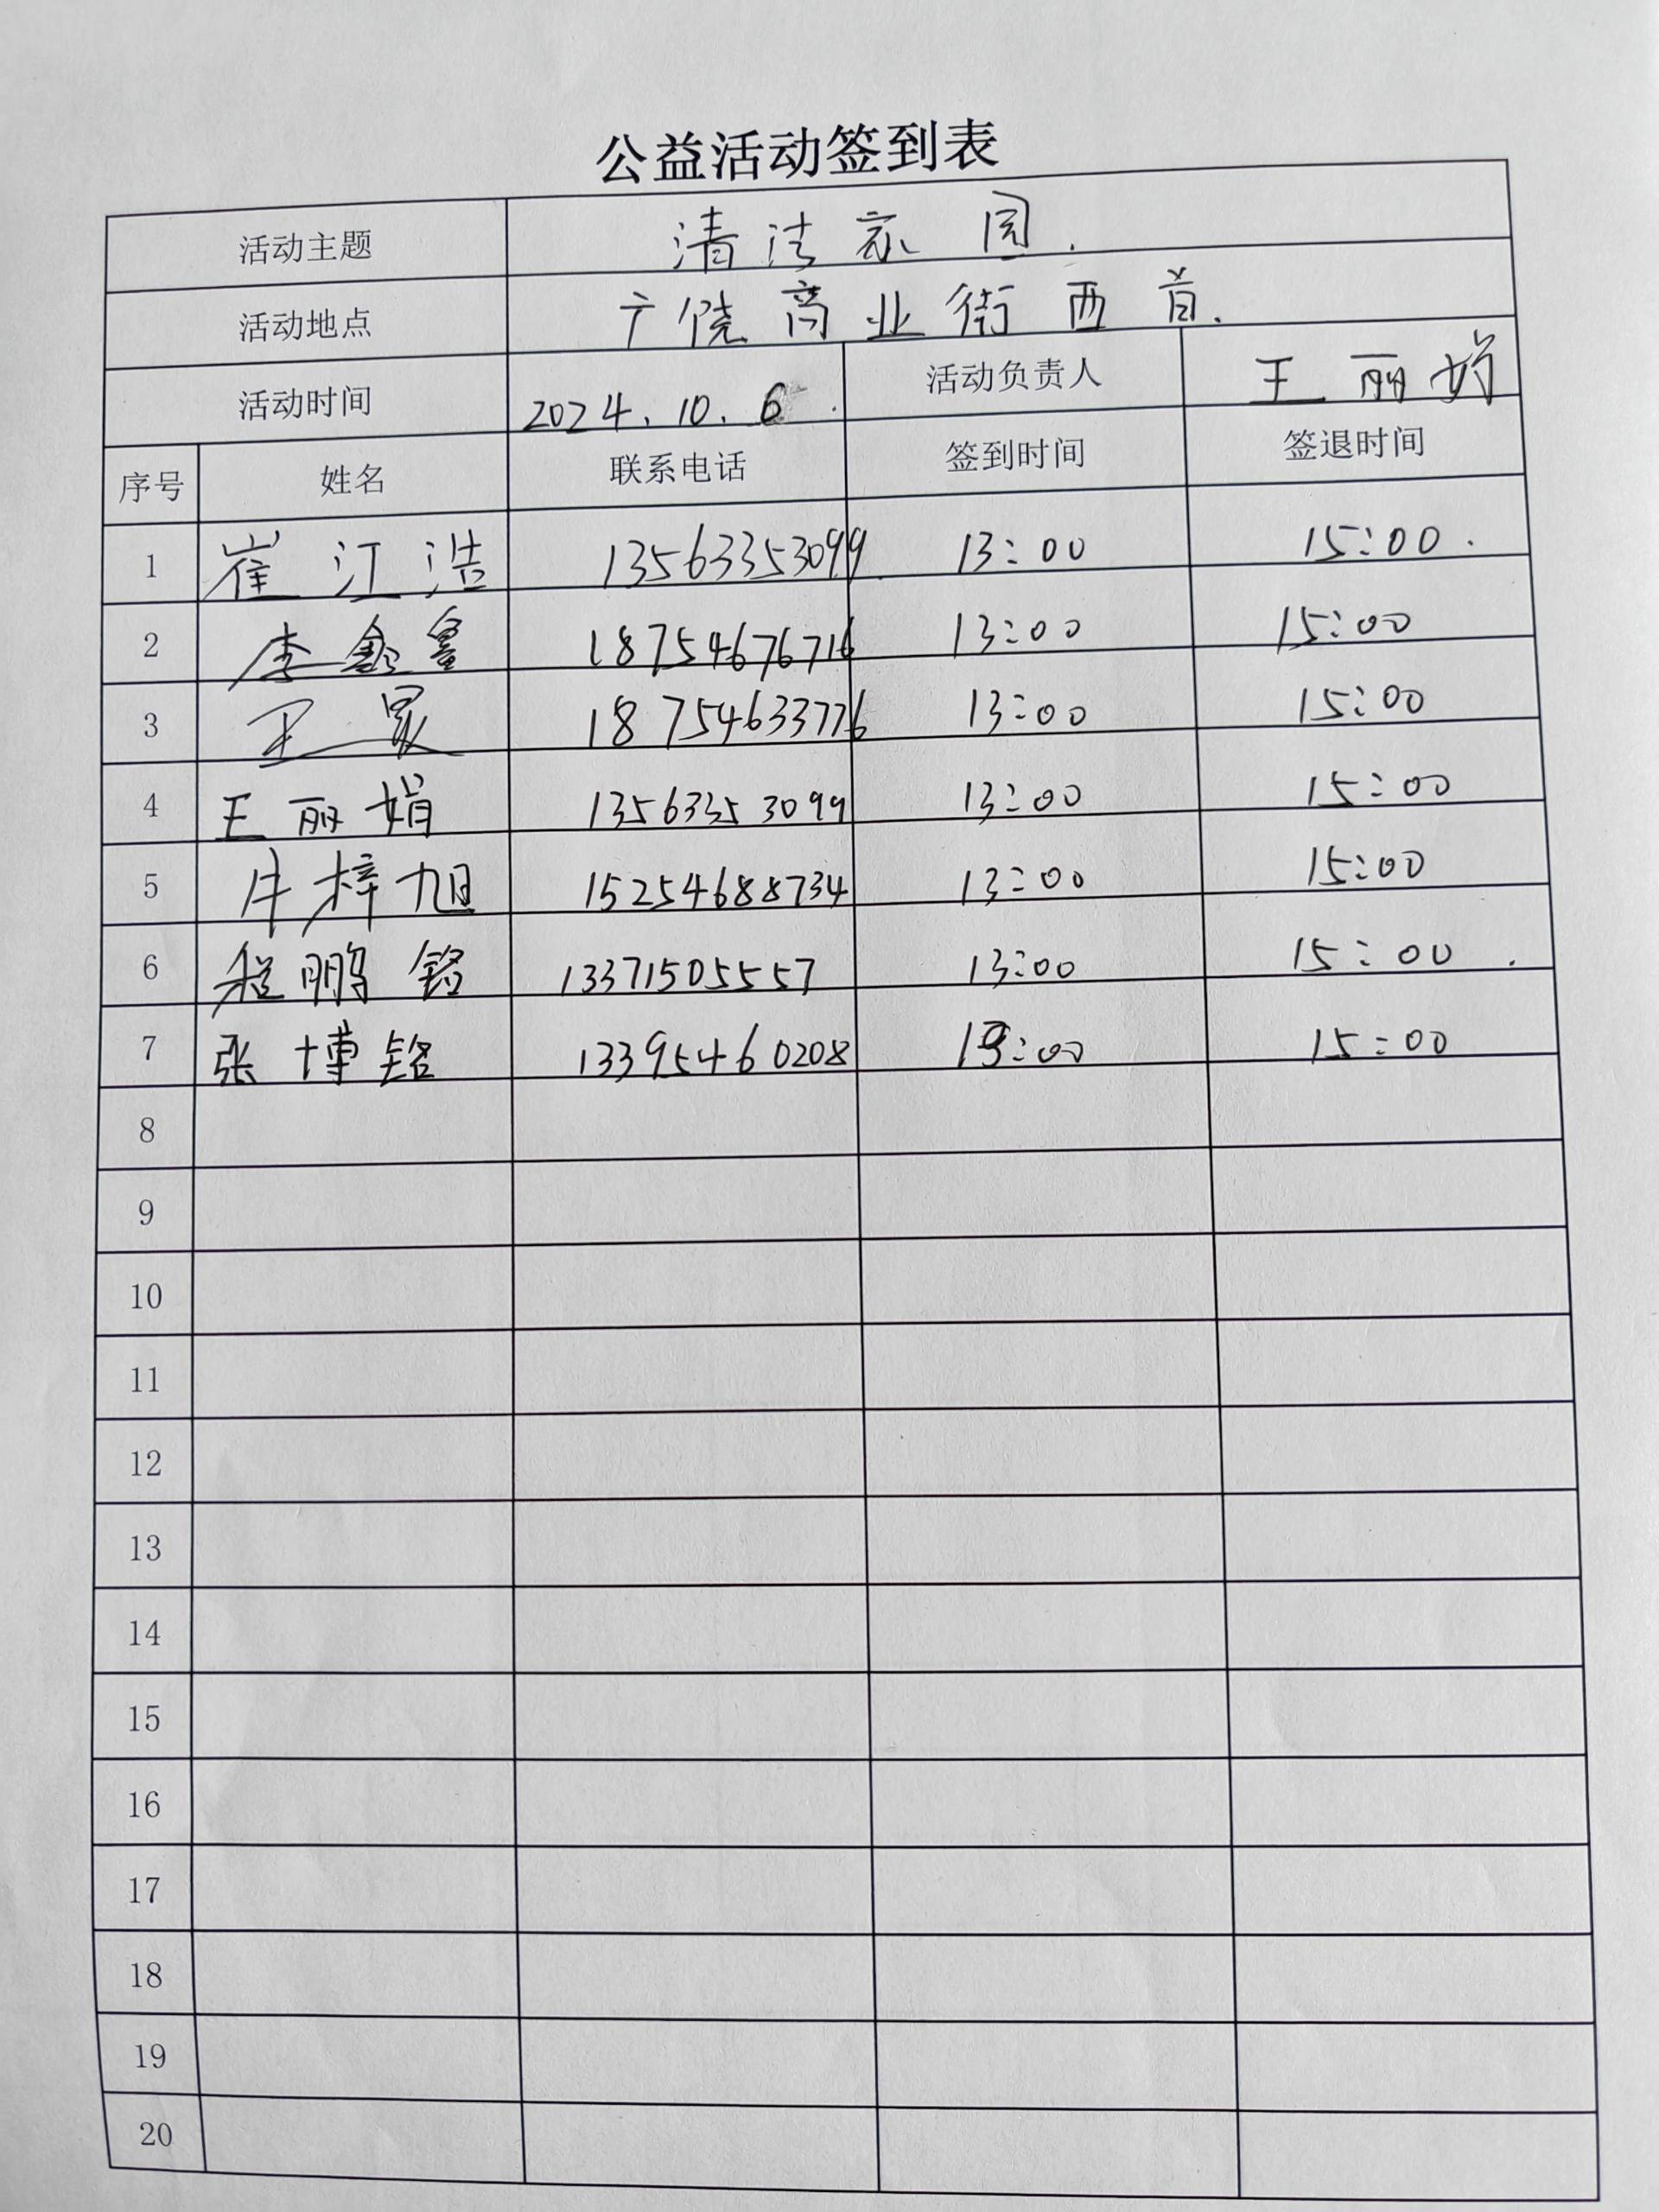 公益活动签到表
活动主题 清洁家园.
活动地点 广饶商业街西首.
活动时间 2024.10.6. 活动负责人 王丽娟
序号 姓名 联系电话 签到时间 签退时间
1 崔江浩 13563353099 13:00 15:00.
2 李鑫 18754676716 13:00 15:00
3 王 18754633776 13:00 15:00
4 王丽娟 13563353099 13:00 15:00
5 牛梓旭 15254688734 13:00 15:00
6 程鹏铭 13371505557 13:00 15:00.
7 张博铭 13395460208 13:00 15:00
8
9
10
11
12
13
14
15
16
17
18
19
20